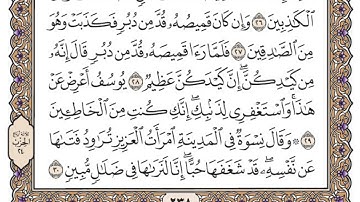 ٱلْكَٰذِبِينَ ٢٦ وَإِن كَانَ قَمِيصُهُۥ قُدَّ مِن دُبُرٍ فَكَذَبَتْ وَهُوَ
مِنَ ٱلصَّٰدِقِينَ ٢٧ فَلَمَّا رَءَا قَمِيصَهُۥ قُدَّ مِن دُبُرٍ قَالَ إِنَّهُۥ
مِن كَيْدِكُنَّ إِنَّ كَيْدَكُنَّ عَظِيمٌ ٢٨ يُوسُفُ أَعْرِضْ عَنْ
هَٰذَا وَٱسْتَغْفِرِى لِذَنۢبِكِ إِنَّكِ كُنتِ مِنَ ٱلْخَاطِـِٔينَ
٢٩ وَقَالَ نِسْوَةٌ فِى ٱلْمَدِينَةِ ٱمْرَأَتُ ٱلْعَزِيزِ تُرَٰوِدُ فَتَىٰهَا
عَن نَّفْسِهِۦ قَدْ شَغَفَهَا حُبًّا إِنَّا لَنَرَىٰهَا فِى ضَلَٰلٍ مُّبِينٍ ٣٠
الحزب
٢٤
٢٣٨